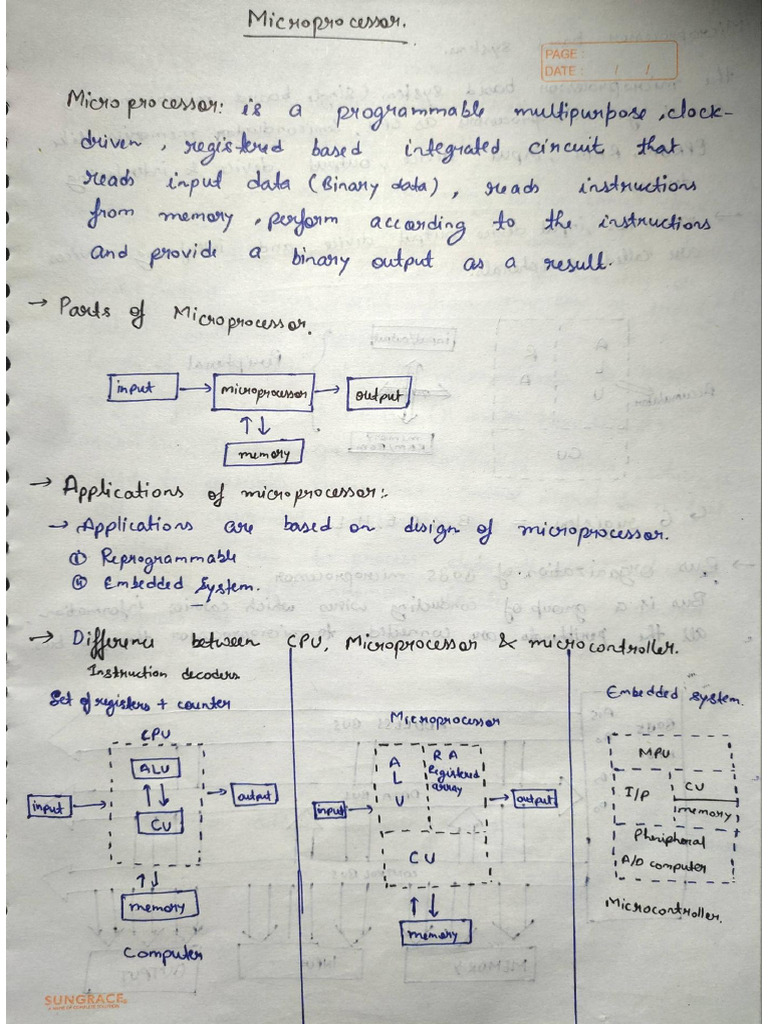 Microprocessor.
PAGE :
DATE : / /
Microprocessor: is a programmable multipurpose, clock-
driven, registered based integrated circuit that
reads input data (Binary data), reads instructions
from memory, perform according to the instructions
and provide a binary output as a result.
→ Parts of Microprocessor.
input → microprocessor → output
↑↓
memory
→ Applications of microprocessor:-
→ Applications are based on design of microprocessor.
① Reprogrammable
② Embedded System.
→ Difference between CPU, Microprocessor & microcontroller.
Instruction decoders
Set of registers + counter
CPU
ALU
↑↓
CU
input →
→ output
↑↓
memory
Computer
Microprocessor
A L U
R A
Registered
array
CU
input →
→ output
↑↓
memory
Embedded system.
MPU
I/P
CU
memory
Pheripheral
A/D computer
Microcontroller.
SUNGRACE